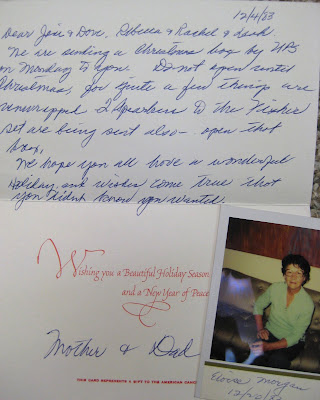 12/4/83
Dear Joni & Don, Rebecca & Rachel & Leah
We are sending a Christmas box by UPS
on Monday to you. Do not open until
Christmas, for quite a few things are
unwrapped. 2 Speakers to the Fisher
set are being sent also - open that
box.
We hope you all have a wonderful
Holiday and wishes come true that
you didn't know you wanted.
Wishing you a Beautiful Holiday Season
and a New Year of Peace
Mother & Dad
THIS CARD REPRESENTS A GIFT TO THE AMERICAN
Morgan